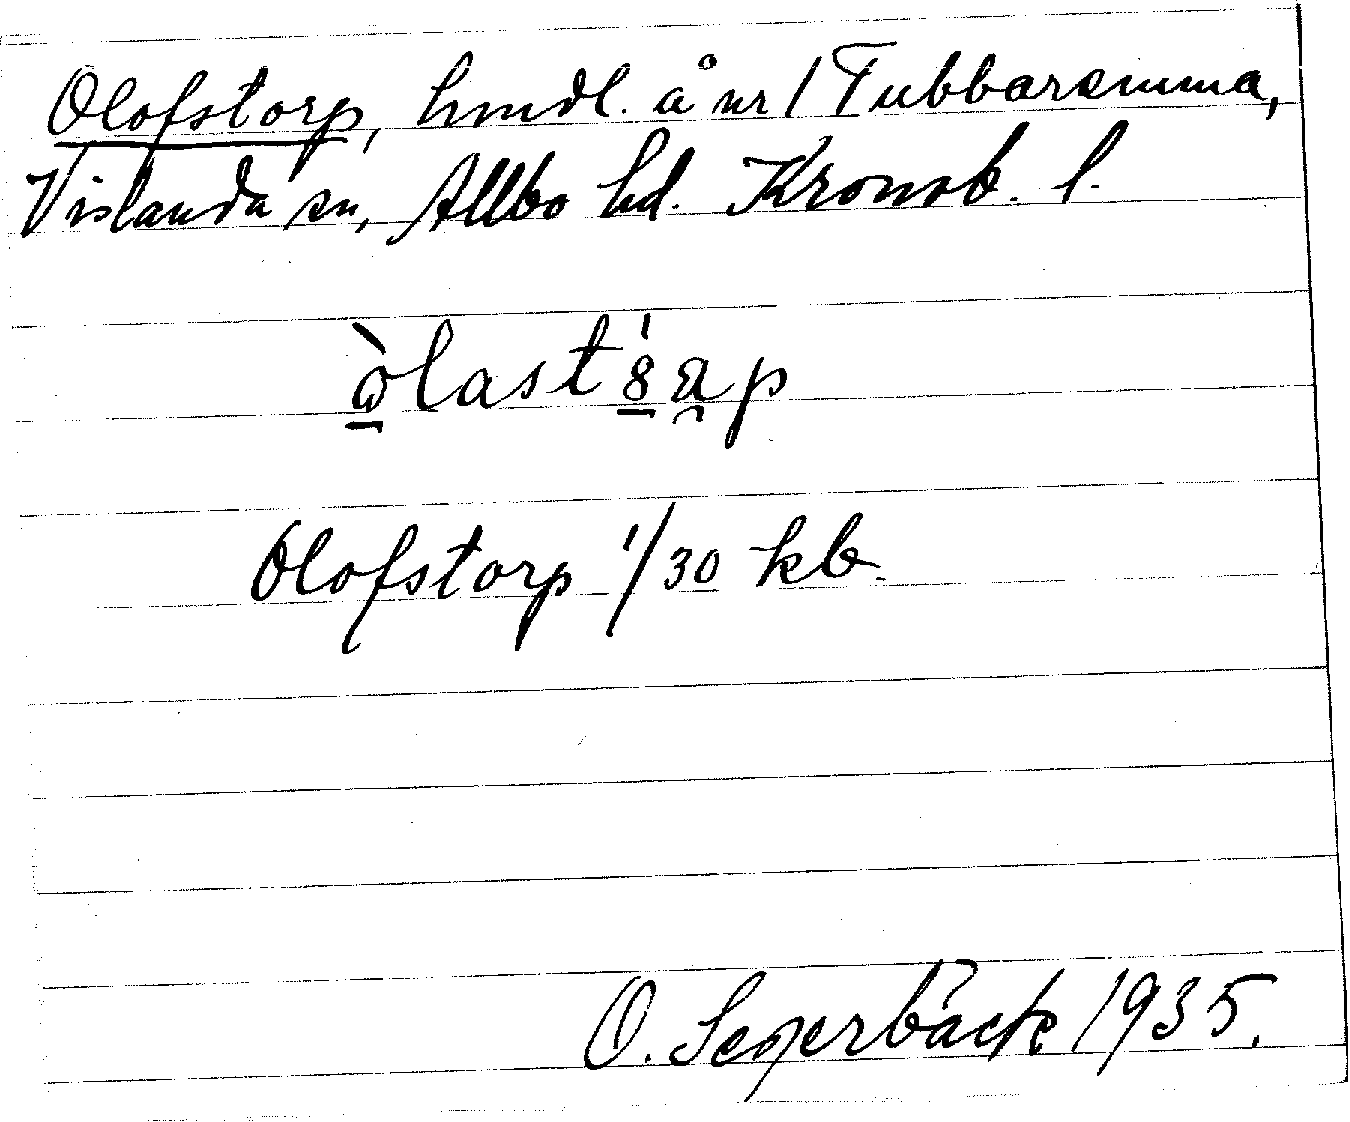 Olofstorp, hmdl. å nr 1 Tubbaremma,
Vislanda sn, Allbo hd. Kronob. l.
Olofstorp 1/30 kb.
O. Segerbäck 1935.